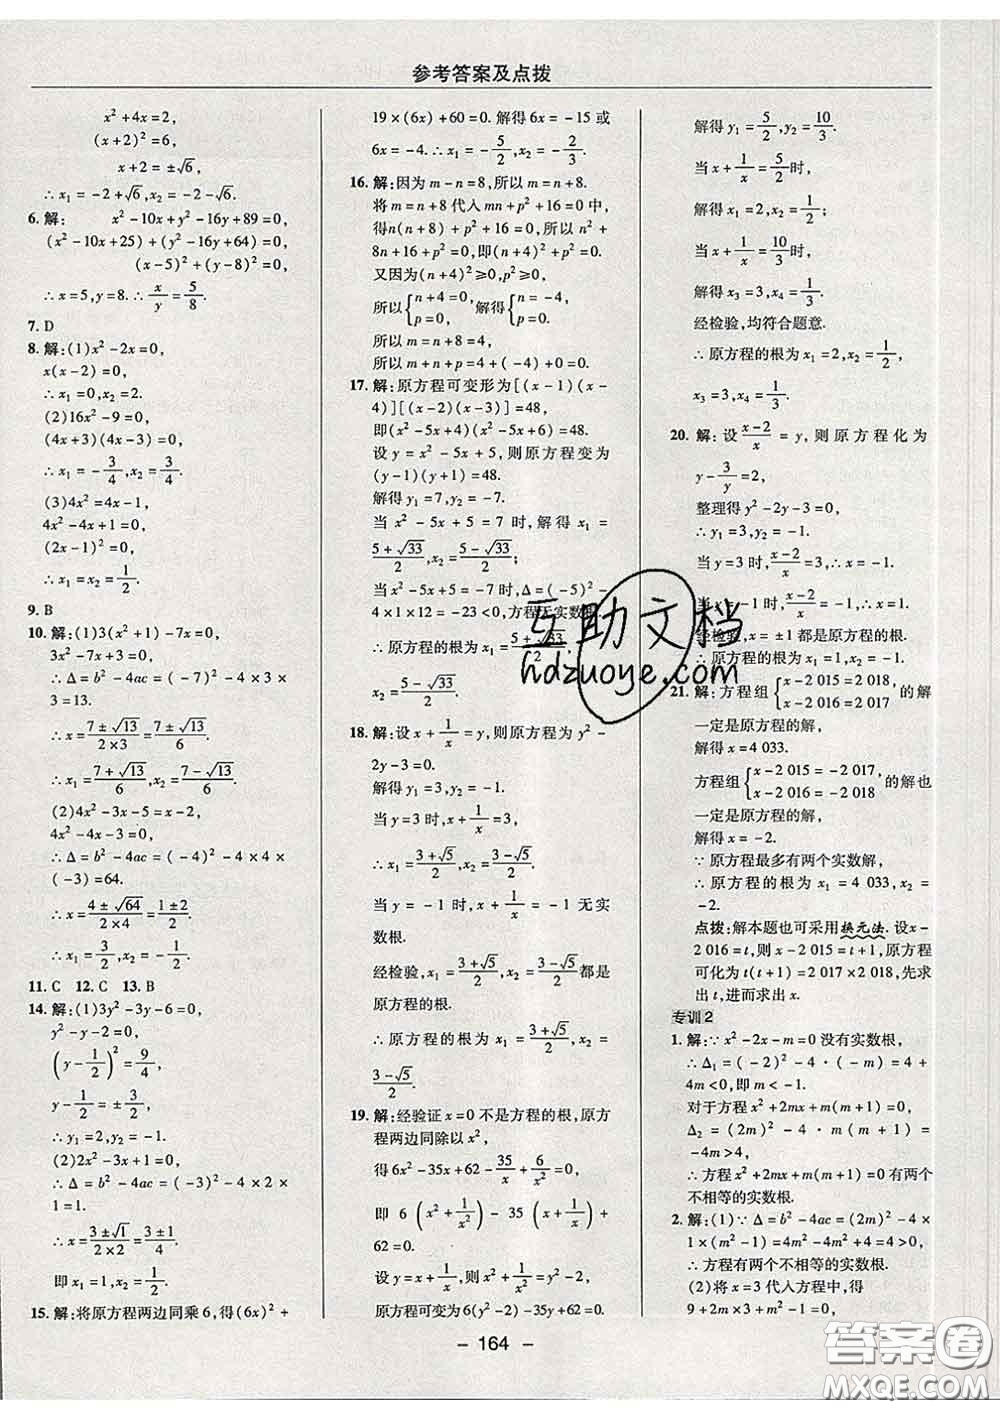 参考答案及点拨
x²+4x=2,
(x+2)²=6,
x+2=±√6,
∴x₁=-2+√6,x₂=-2-√6.
6. 解: x²-10x+y²-16y+89=0,
(x²-10x+25)+(y²-16y+64)=0,
(x-5)²+(y-8)²=0,
∴x=5,y=8.∴x/y=5/8.
7. D
8. 解:(1)x²-2x=0,
x(x-2)=0,
∴x₁=0,x₂=2.
(2)16x²-9=0,
(4x+3)(4x-3)=0,
∴x₁=-3/4,x₂=3/4.
(3)4x²=4x-1,
4x²-4x+1=0,
(2x-1)²=0,
∴x₁=x₂=1/2.
9. B
10. 解:(1)3(x²+1)-7x=0,
3x²-7x+3=0,
∴Δ=b²-4ac=(-7)²-4×3×
3=13.
∴x=(7±√13)/(2×3)=(7±√13)/6.
∴x₁=(7+√13)/6,x₂=(7-√13)/6.
(2)4x²-3x-5=x-2,
4x²-4x-3=0,
∴Δ=b²-4ac=(-4)²-4×4×
(-3)=64.
∴x=(4±√64)/(2×4)=(1±2)/2.
∴x₁=3/2,x₂=-1/2.
11. C 12. C 13. B
14. 解:(1)3y²-3y-6=0,
y²-y-2=0,
(y-1/2)²=9/4,
y-1/2=±3/2,
∴y₁=2,y₂=-1.
(2)2x²-3x+1=0,
∴Δ=b²-4ac=(-3)²-4×2×
1=1.
∴x=(3±√1)/(2×2)=(3±1)/4.
即x₁=1,x₂=1/2.
15. 解:将原方程两边同乘6,得(6x)²+
19×(6x)+60=0.解得6x=-15或
6x=-4.∴x₁=-5/2,x₂=-2/3.
16. 解:因为m-n=8,所以m=n+8.
将m=n+8代入mn+p²+16=0中,
得n(n+8)+p²+16=0,所以n²+
8n+16+p²=0,即(n+4)²+p²=0.
又因为(n+4)²≥0,p²≥0,
所以{n+4=0, p=0, 解得{n=-4, p=0.
所以m=n+8=4,
所以m+n+p=4+(-4)+0=0.
17. 解:原方程可变形为[(x-1)(x-
4)][(x-2)(x-3)]=48,
即(x²-5x+4)(x²-5x+6)=48.
设y=x²-5x+5,则原方程变为
(y-1)(y+1)=48.
解得y₁=7,y₂=-7.
当x²-5x+5=7时,解得x₁=
(5+√33)/2,x₂=(5-√33)/2;
当x²-5x+5=-7时,Δ=(-5)²-
4×1×12=-23<0,方程无实数根.
∴原方程的根为x₁=(5+√33)/2,
x₂=(5-√33)/2.
18. 解:设x+1/x=y,则原方程为y²-
2y-3=0.
解得y₁=3,y₂=-1.
当y=3时,x+1/x=3,
∴x₁=(3+√5)/2,x₂=(3-√5)/2.
当y=-1时,x+1/x=-1无实
数根.
经检验,x₁=(3+√5)/2,x₂=(3-√5)/2都是
原方程的根.
∴原方程的根为x₁=(3+√5)/2,x₂=
(3-√5)/2.
19. 解:经验证x=0不是方程的根,原方
程两边同除以x²,
得6x²-35x+62-35/x+6/x²=0,
即6(x²+1/x²)-35(x+1/x)+
62=0.
设y=x+1/x,则x²+1/x²=y²-2,
原方程可变为6(y²-2)-35y+62=0.
解得y₁=5/2,y₂=10/3.
当x+1/x=5/2时,
解得x₁=2,x₂=1/2;
当x+1/x=10/3时,
解得x₃=3,x₄=1/3.
经检验,均符合题意.
∴原方程的根为x₁=2,x₂=1/2,
x₃=3,x₄=1/3.
20. 解:设(x-2)/x=y,则原方程化为
y-3/y=2,
整理得y²-2y-3=0,
∴y₁=3,y₂=-1.
当y=3时,(x-2)/x=3,∴x=-1.
当y=-1时,(x-2)/x=-1,∴x=1.
经检验,x=±1都是原方程的根.
∴原方程的根为x₁=1,x₂=-1.
21. 解:方程组{x-2 015=2 018, x-2 016=2 017的解
一定是原方程的解,
解得x=4 033.
方程组{x-2 015=-2 017, x-2 016=-2 018的解也
一定是原方程的解,
解得x=-2.
∵原方程最多有两个实数解,
∴原方程的根为x₁=4 033,x₂=
-2.
点拨:解本题也可采用换元法.设x-
2 016=t,则x-2 015=t+1,原方程
可化为t(t+1)=2 017×2 018,先求
出t,进而求出x.
专训2
1. 解:∵x²-2x-m=0没有实数根,
∴Δ₁=(-2)²-4·(-m)=4+
4m<0,即m<-1.
对于方程x²+2mx+m(m+1)=0,
Δ₂=(2m)²-4·m(m+1)=
-4m>4,
∴方程x²+2mx+m(m+1)=0有两个
不相等的实数根.
2. 解:(1)∵Δ=b²-4ac=(2m)²-4×
1×(m²-1)=4m²-4m²+4=4>0,
∴方程有两个不相等的实数根.
(2)将x=3代入方程中,得
9+2m×3+m²-1=0,
- 164 -
互助文档
hdzuoye.com
答案圈
MXQE.COM